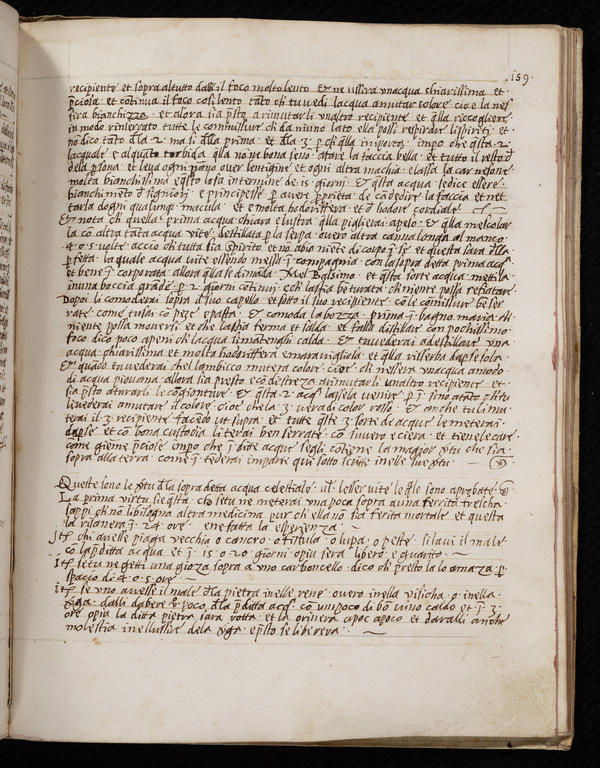 .159.
recipiente et sopra al tutto dalli il foco molto lento. Et ne ussira una acqua chiarissima et.
p̄ciosa. et cōtinua il foco cosi lento. tāto ch̄ tu vedi lacqua amutar colore. cioe la nes
sira bianchizza. et allora sia p̄sto a rimutarli un altro recipiente. et q̄lla riccogliere.
in modo rinserrato tutte le commissure ch̄ da niuno lato ella possi respirar li spiriti. et.
nō dico tāto dlla 2. ma si dlla prima. et dlla 3. p ch̄ q̄lla importa. impo che q̄sta. 2.
lacquale et alquāto torbida. q̄lla nō ni bona seno. afare la faccia bella. et tutto il resto d̄
della p̄sona. et leva ogni pano over lentigine et ogni altra machia. e lassa la carnesone.
molta bianchissima e q̄sto lo fa in termine de. 15. giorni. Et q̄sta acqua se dice essere.
bianchimēto d̄ signiori. e principesse. p̄ avere p̄prieta. de cādedire. la faccia et net
tarla dogni qualunq̄. macula. et e molta hodoriffera. et d̄ hodore cordiale.
Et nota ch̄ quella prima acqua chiara e lustra. q̄lla pigliarai apelo. et q̄lla mescolar
la cō altra tāta acqua vite. destillata p la serpa. overo altra canna longa. al manco.
4. o. 5. volte. accio ch̄ tutta sia spirito. et nō abio niete di corpo ī se. et questa sara dlla.
p̄fetta. la quale acqua vite essendo messa ī compagnia. con la sopra detta prima acq̄.
et bene ī corporata. allora q̄lla se dimāda. Mel Bg̃lisimo. et q̄sta sorte acqua. mettila.
in una boccia grāde. p̄. 2. giorni cōtinui. ech̄ la sia beturata ch̄ niente possa refiatare.
Dopoi li comoderai sopra il suo capello. et sotto il suo recipiente. cō le comissure be ser
rate. come tu sai. cō peze. e pasta. Et comoda la bozza. prima ī bagno maria. ch̄.
niente possa moversi. et che la stia ferma et salda. et falla distillare con pochissimo.
foco. dico poco apeni ch̄ lacqua li mātenghi calda. Et tu vederai adestillare una
acqua chiarissima et molta hodoriffera e maravigliosa. et q̄lla risserba dap̄se sola.
Et quādo tu vederai chel lambicco mutera colore. cioe. ch̄ nessera una acqua amodo.
di acqua piovana. allora sia presto e cō destreza a rimutarli un altro recipiente. et.
sia p̄sto aturarli le cōgionture. Et q̄sta. 2. acq̄. lassela venire. p ī sino atāto ch̄ tu
li vederai amutare il colore. cioe ch̄ e la 3. vera di color rosso. Et anche tu li mu
terai il 3. recipiente facēdo ut supra. et tutte q̄ste 3. sorte de acque le meterai
dap̄se. et cō bona custodia li terai ben serrate. cō suvero e ciera. et tienele care.
come gieme p̄ciose. impo che ī dite acque segli cōtiene la magior v̄tu che sia
sopra alla terra. come ī tederai imparte qui sotto scritte in elle sue v̄tu.
Queste sono le v̄tu dlla sopra detta acqua celestiale. ut̄. les ser vite. le q̄le sono aprobate
La prima virtu si e q̄sta. ch̄ se tu ne meterai una poca sopra a una ferrita frescha.
sappi ch̄ nō li bisogna altra medicina. pur ch̄ ella nō sia ferita mortale. et questa
la risanera ī. 24. ore. ene fatta la esperienza.
Itē. chi avesse piaga vecchia o cancro. o fistula. o lupa. o peste. si lavi il male.
cō la p̄ditta acqua. et ī. 15. o. 20. giorni. opiu. sera libero. e guarito.
Itē. se tu ne getti una gioza sopra a uno carboncello. dico ch̄ presto la lo amaza. p̄.
spaccio di. 4. o. 5. ore.
Itē. se uno avesse il male dlla pietra in elle rene. overo. in ella visicha. o in ella.
v̄ga. dalli dabere ū poco. dlla p̄ditta acq̄. cō un poco di bō vino caldo. et ī 3.
ore opiu. la ditta pietra sara rotta. et la orinera apoc apoco. et daralli anche
molestia in ell ussire dela v̄ga. e p̄sto se liberera.